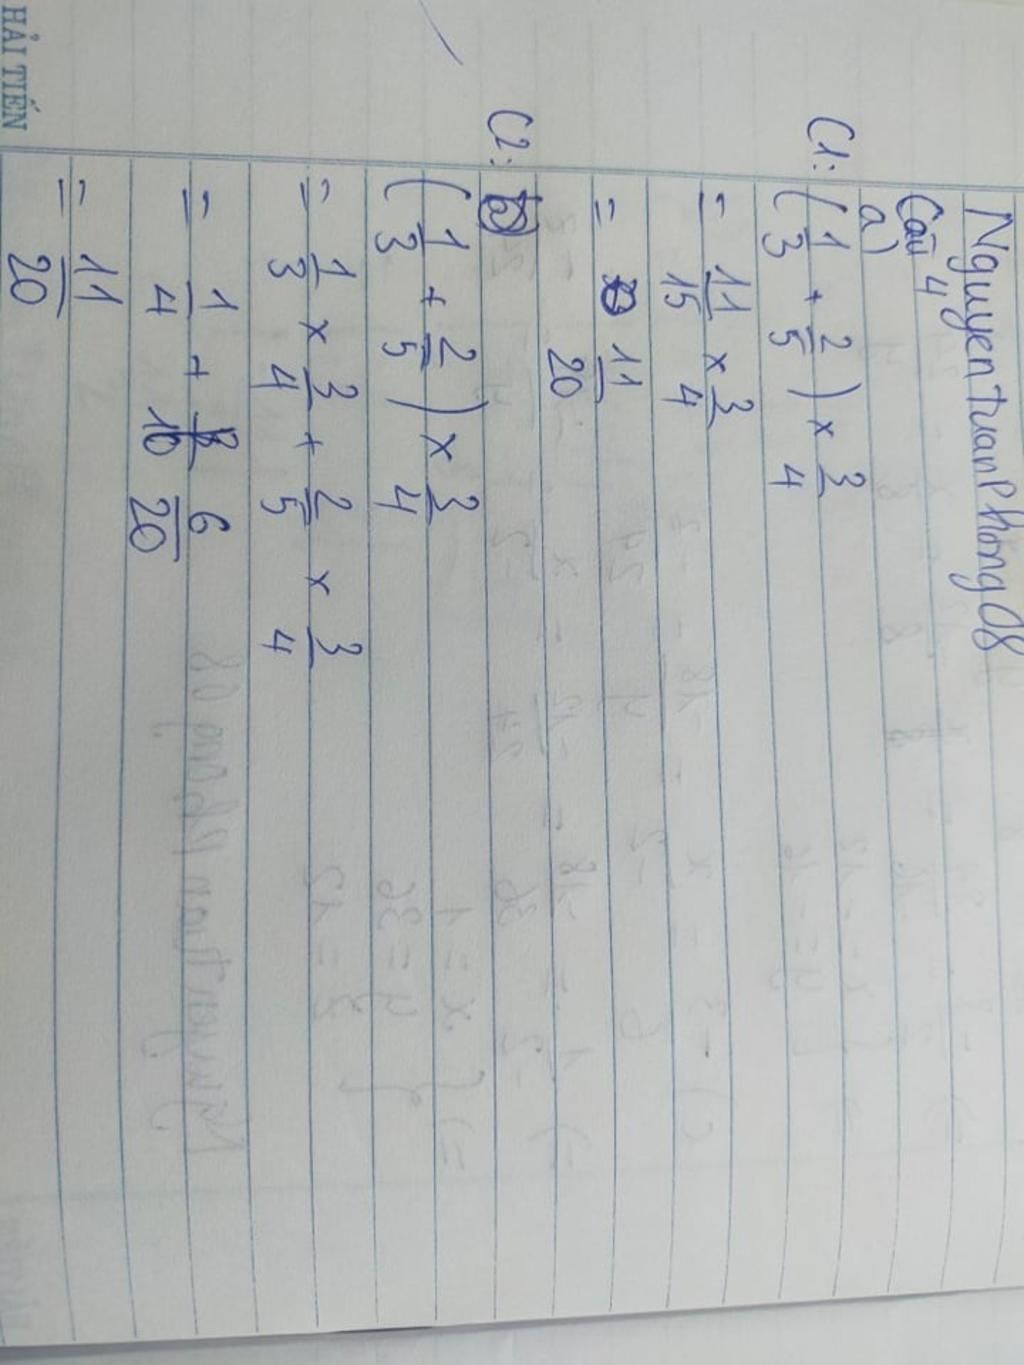 Nguyen Tuan Phong 08
Câu 4
a)
C1: (1/3 + 2/5) x 3/4
= 11/15 x 3/4
= 11/20
C2:
(1/3 + 2/5) x 3/4
= 1/3 x 3/4 + 2/5 x 3/4
= 1/4 + 6/20
= 11/20
HẢI TIẾN